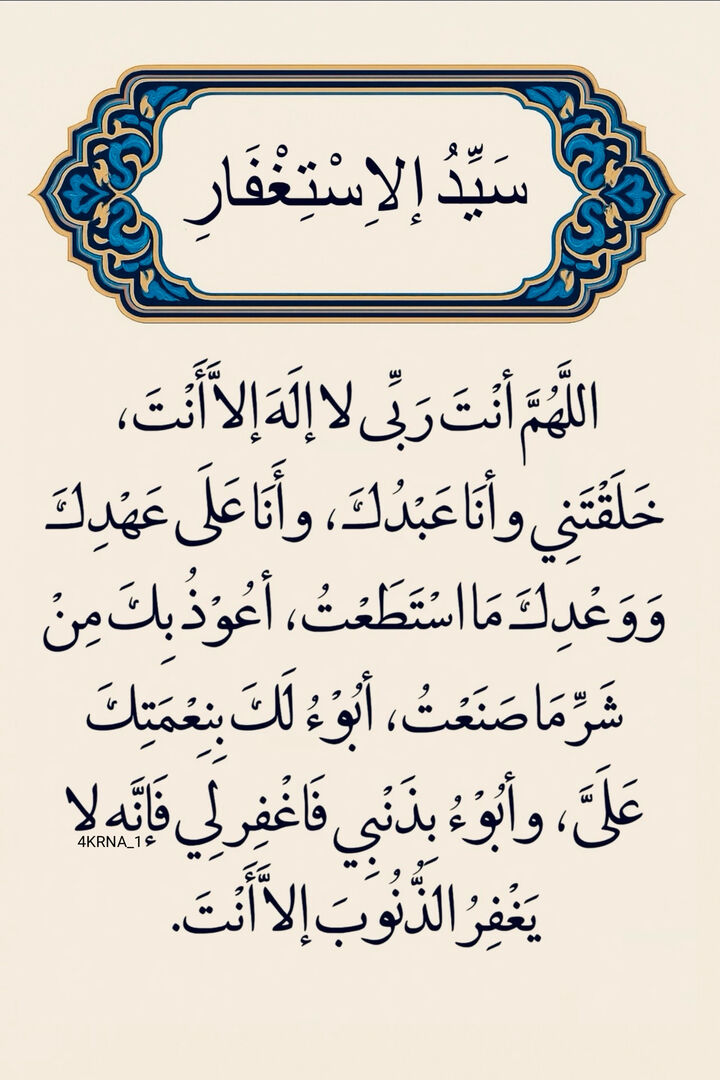 سَيِّدُ إلاِسْتِغْفَارِ
اللَّهُمَّ أنْتَ رَبِّى لا إلَهَ إلاَّ أَنْتَ،
خَلَقْتَنِي وأنَا عَبْدُكَ، وأَنَا عَلَى عَهْدِكَ
وَوَعْدِكَ مَا اسْتَطَعْتُ، أعُوْذُ بِكَ مِنْ
شَرِّ مَا صَنَعْتُ، أبُوْءُ لَكَ بِنِعْمَتِكَ
عَلَىَّ، وأبُوْءُ بِذَنْبِي فَاغْفِر لِي فَإنَّه لا
4KRNA_1
يَغْفِرُ الذُّنُوبَ إلاَّ أَنْتَ.